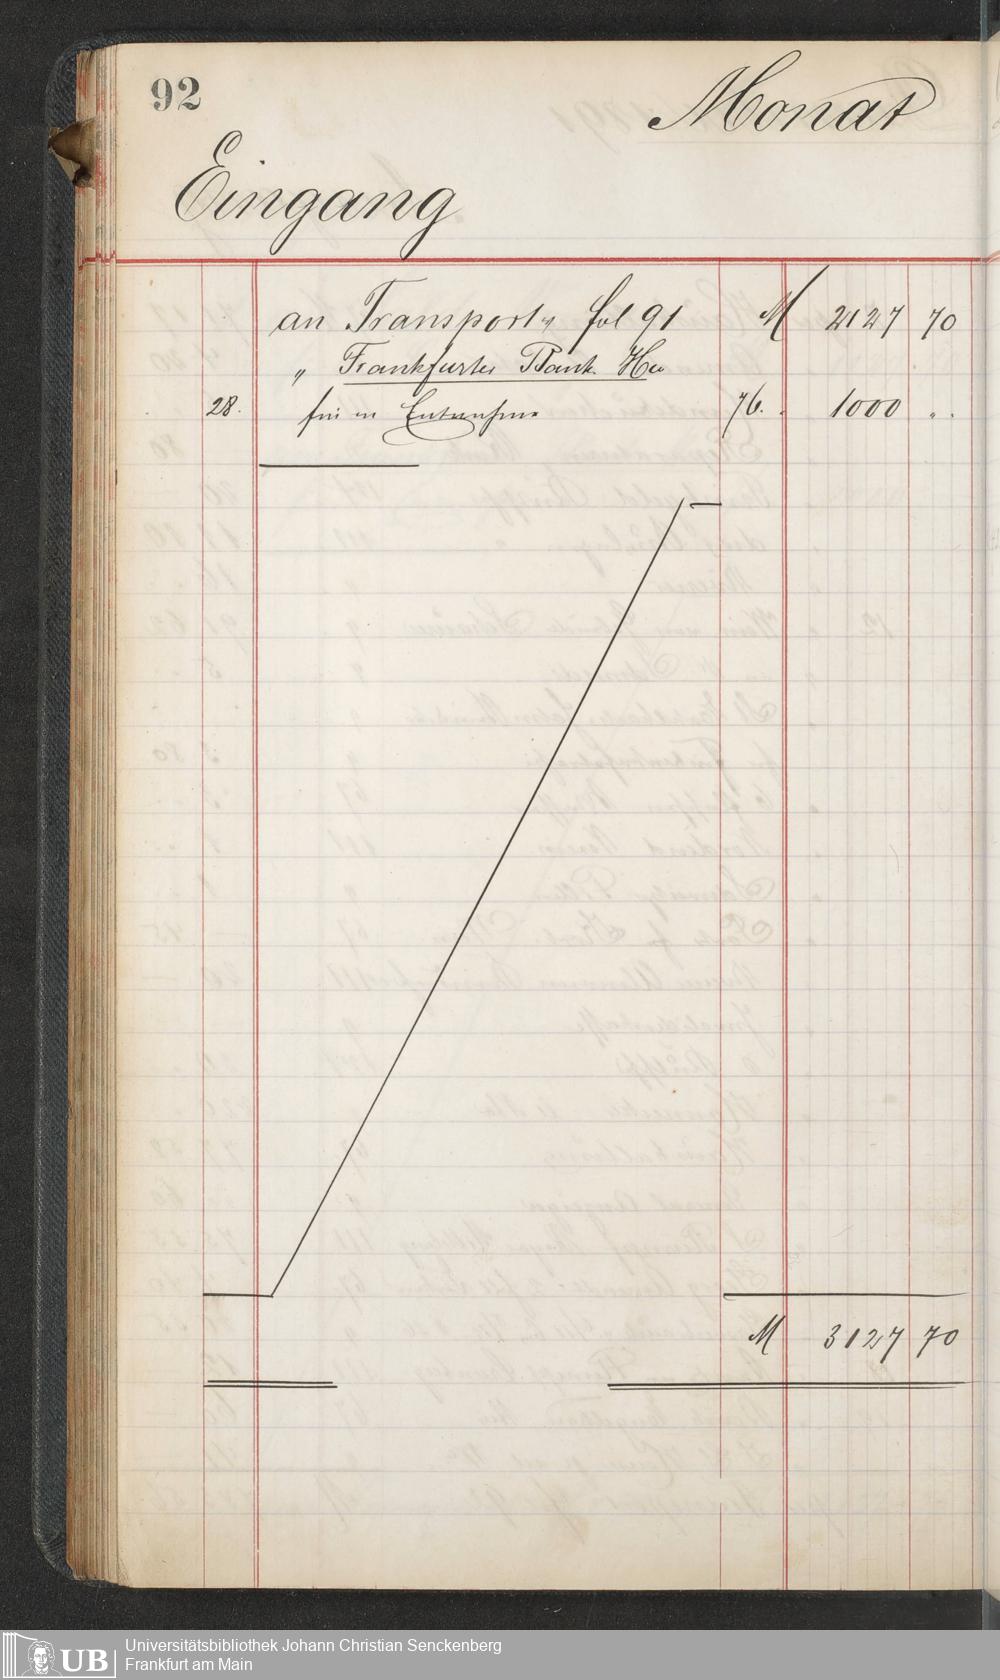 92
Monat
Eingang
an Transport fol 91 M 2127 70
" Frankfurter Bank
28. 76. 1000 "
M 3127 70
UB Universitätsbibliothek Johann Christian Senckenberg
Frankfurt am Main